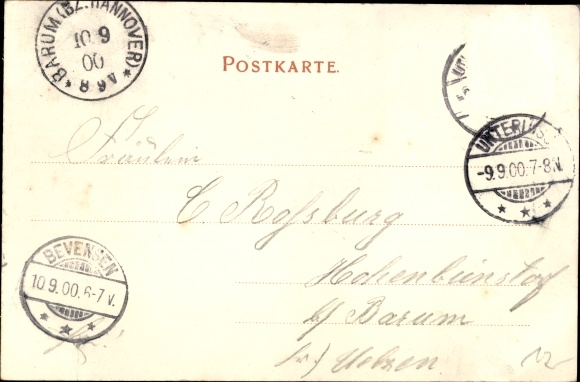 BARUM (BZ. HANNOVER)
10 9
00
* 6-8 *
POSTKARTE.
UNTERLÜSS
-9.9.00.7-8N.
Fräulein
C Roßburg
Hohenbünstorf
b/ Barum
Kr.) Uelzen
BEVENSEN
10.9.00.6-7V.
12